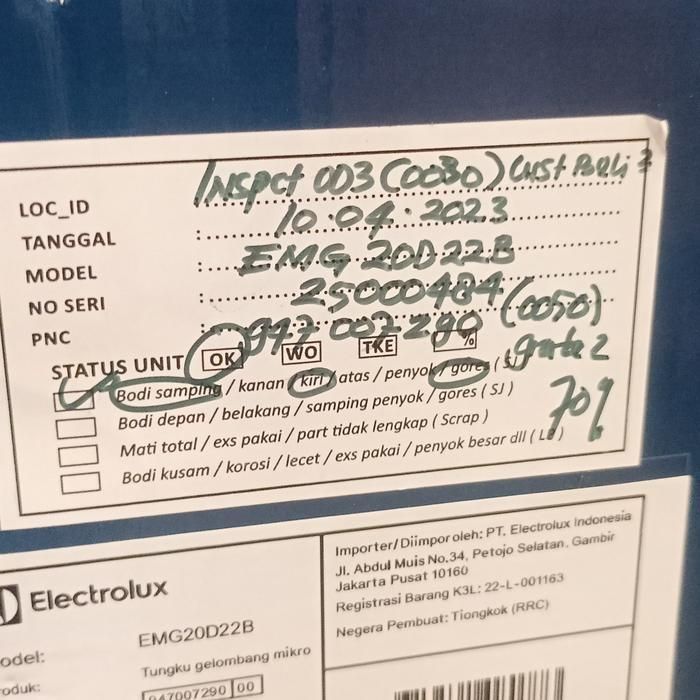 LOC_ID Inspct 003 (0030) Cust Bali
TANGGAL : 10.04.2023
MODEL : EMG 20D22B
NO SERI : 25000484 (0050)
PNC : 947 007 290
STATUS UNIT OK WO TKE % grade 2
Bodi samping / kanan / kiri / atas / penyok / gores (SJ
Bodi depan / belakang / samping penyok / gores ( SJ )
Mati total / exs pakai / part tidak lengkap ( Scrap )
Bodi kusam / korosi / lecet / exs pakai / penyok besar dll ( LB )
70%
Electrolux
odel: EMG20D22B
Tungku gelombang mikro
roduk: 947007290 00
Importer/Diimpor oleh: PT. Electrolux Indonesia
Jl. Abdul Muis No.34, Petojo Selatan, Gambir
Jakarta Pusat 10160
Registrasi Barang K3L: 22-L-001163
Negera Pembuat: Tiongkok (RRC)